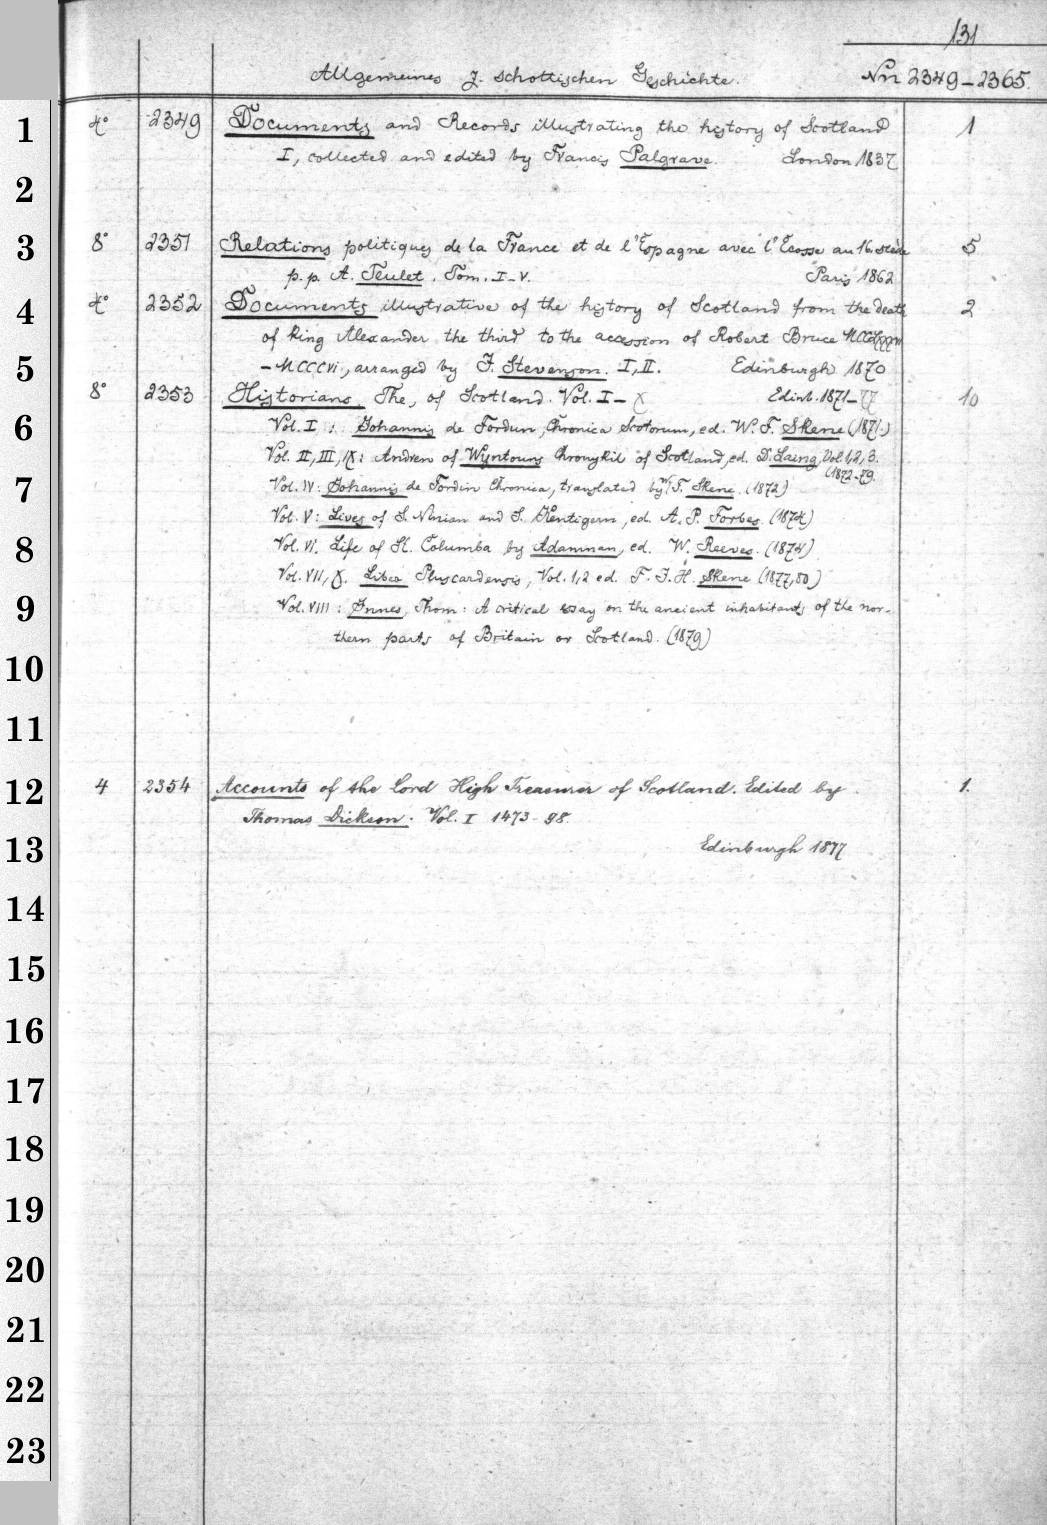 131
Allgemeines z. schottischen Geschichte. Nrn 2349-2365.
1
4° 2349 Documents and Records illustrating the history of Scotland 1
I, collected and edited by Francis Palgrave. London 1837
2
3
8° 2351 Relations politiques de la France et de l'Espagne avec l'Ecosse au 16. siècle 5
p. p. A. Teulet. Tom. I-V. Paris 1862
4
4° 2352 Documents illustrative of the history of Scotland from the death 2
of king Alexander the third to the accession of Robert Bruce
5
-MCCCVI., arranged by J. Stevenson. I, II. Edinburgh 1870
8° 2353 Historians, The, of Scotland. Vol. I-X Edinb. 1871- 10
6
Vol. I: Johannis de Fordun, Chronica Scotorum, ed. W. F. Skene (1871.)
Vol. II, III, IX: Andrew of Wyntouns Chronykil of Scotland, ed. D. Laing, Vol. 1, 2, 3.
(1872-79.
7
Vol. IV: Johannis de Fordun Chronica, translated by F. Skene. (1872)
Vol. V: Lives of S. Ninian and S. Kentigern, ed. A. P. Forbes. (1874)
8
Vol. VI. Life of St. Columba by Adamnan, ed. W. Reeves. (1874)
Vol. VII, X. Liber Pluscardensis, Vol. 1, 2 ed. F. J. H. Skene (1877, 80)
9
Vol. VIII: Innes, Thom: A critical essay on the ancient inhabitants of the nor-
thern parts of Britain or Scotland. (1879)
10
11
12
4 2354 Accounts of the Lord High Treasurer of Scotland. Edited by 1.
Thomas Dickson. Vol. I 1473-98.
13
Edinburgh 1877
14
15
16
17
18
19
20
21
22
23